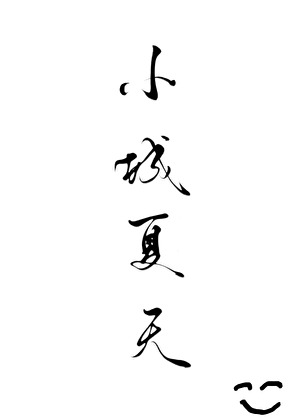 小城夏天